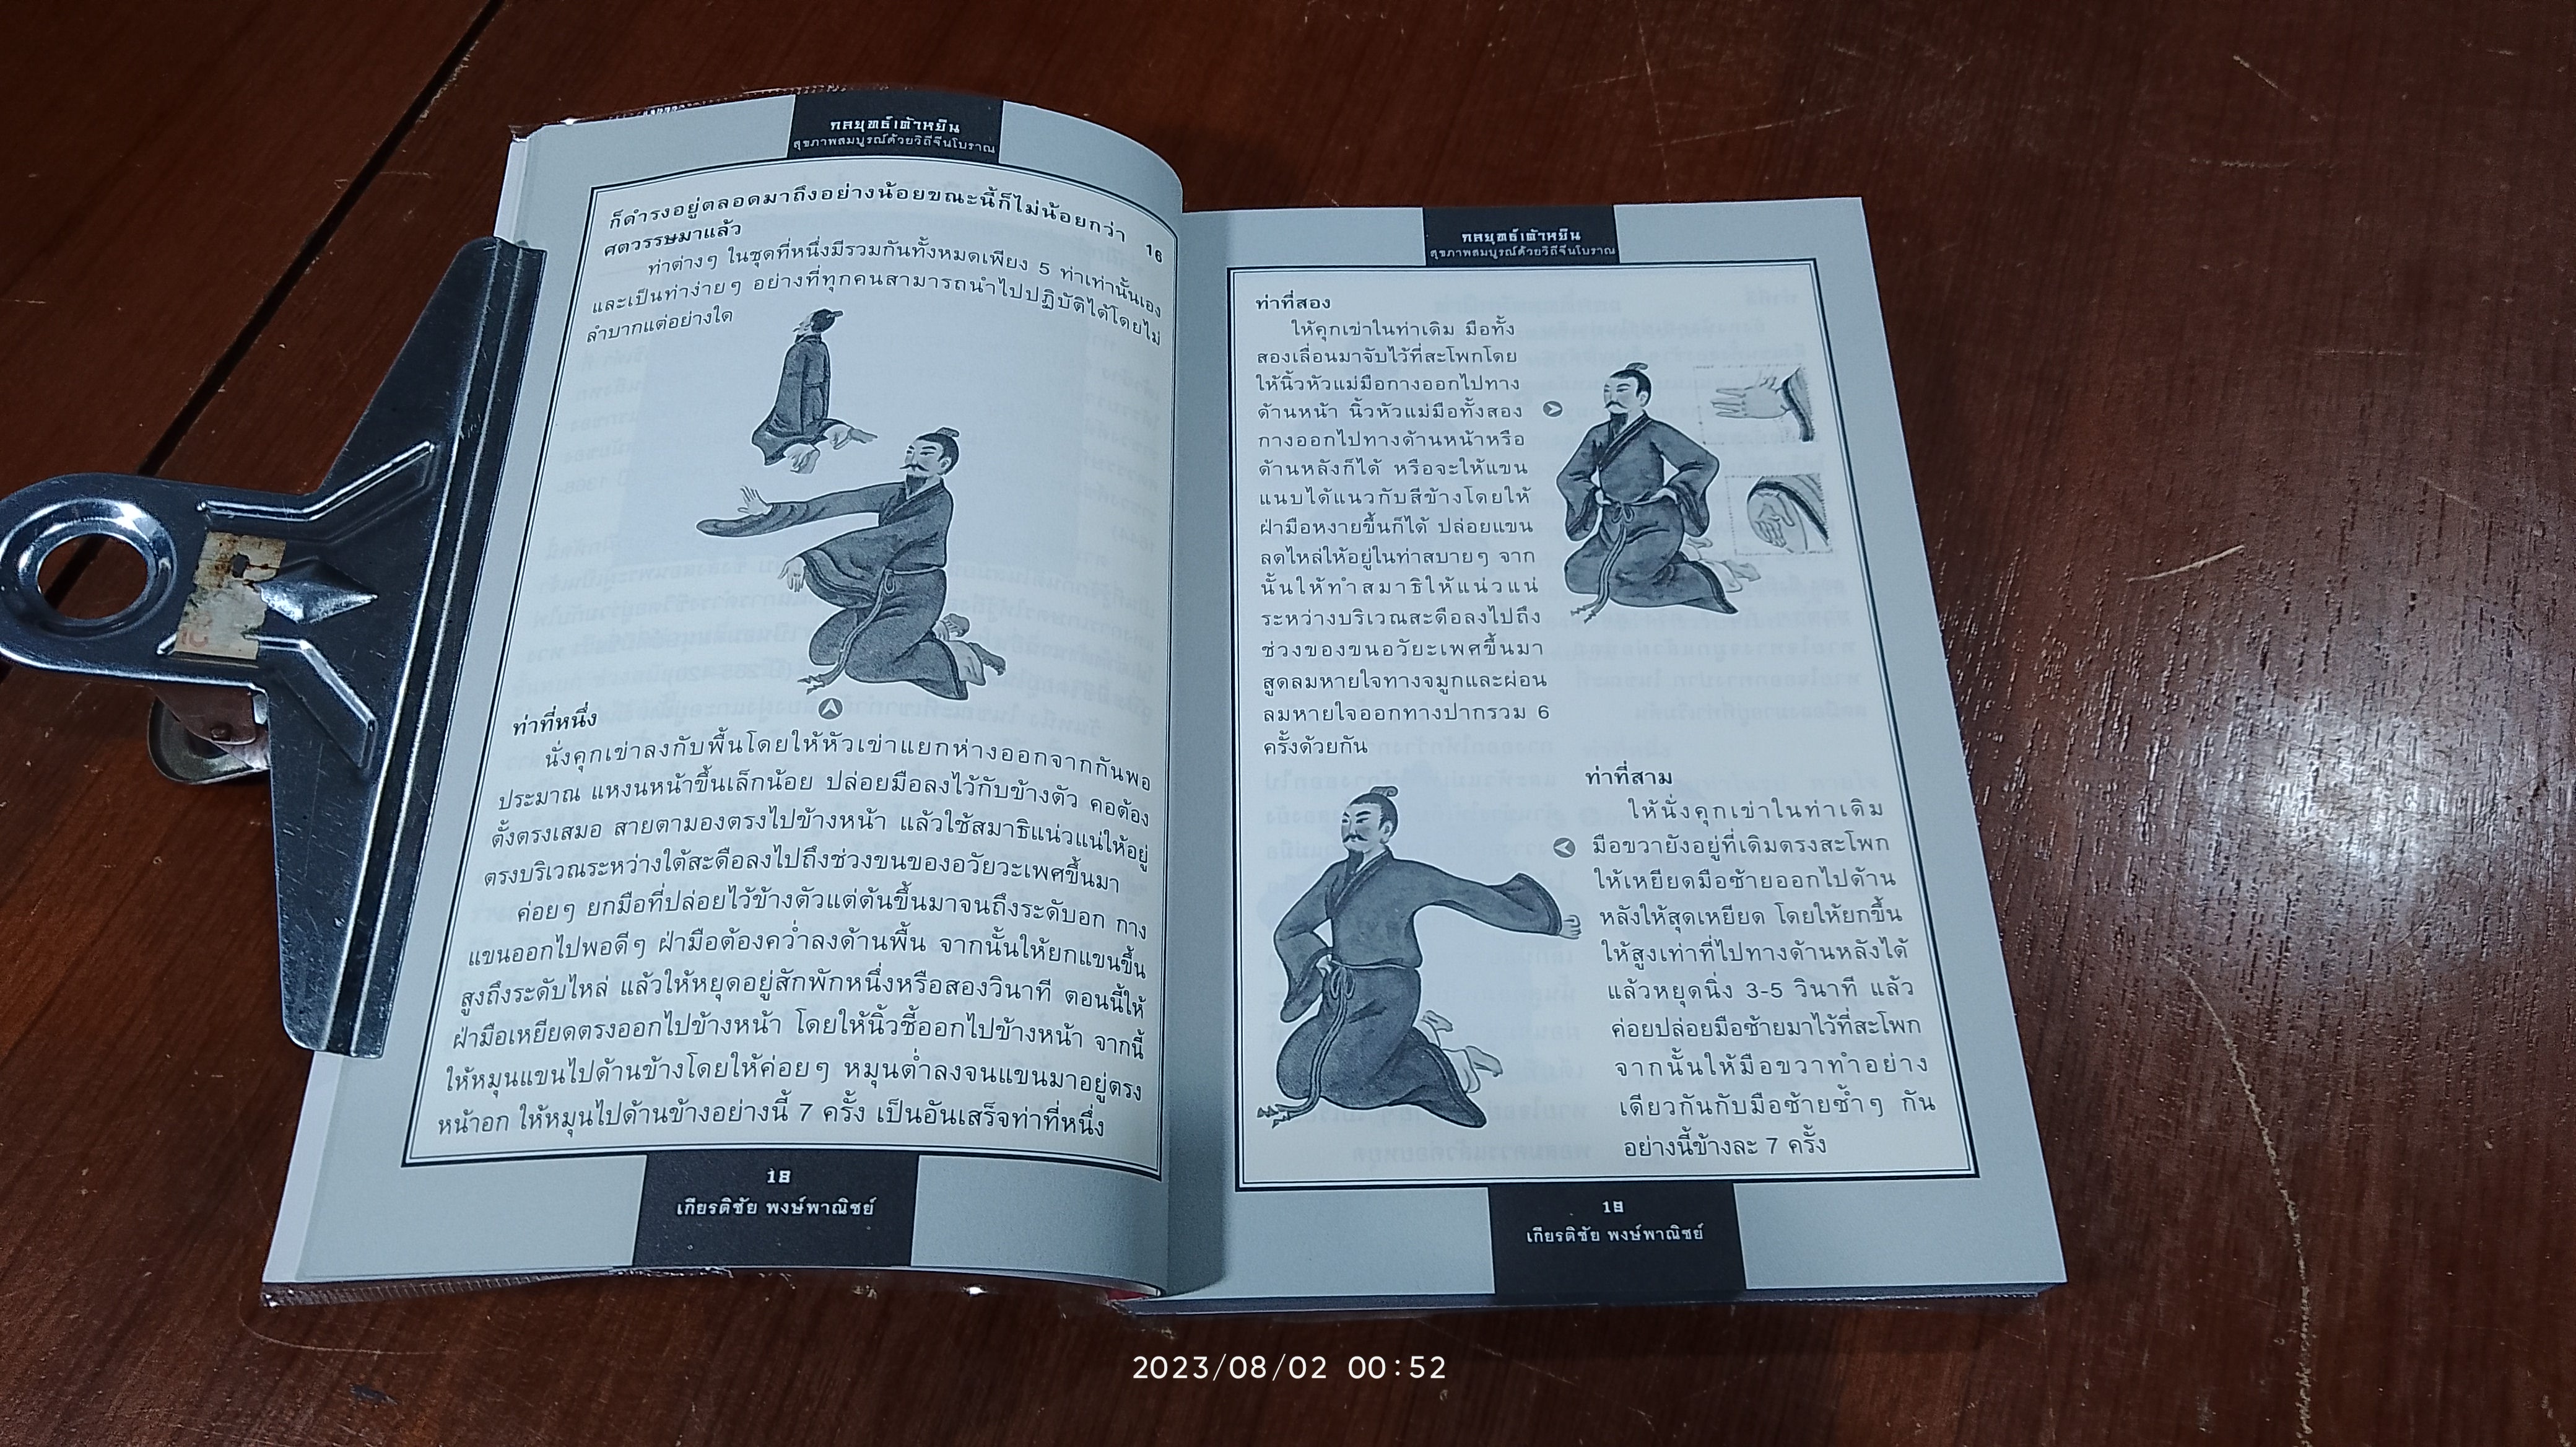 กลยุทธ์เต้าหยิน
สุขภาพสมบูรณ์ด้วยวิถีจีนโบราณ
ก็ดำรงอยู่ตลอดมาถึงอย่างน้อยขณะนี้ก็ไม่น้อยกว่า 16
ศตวรรษมาแล้ว
ท่าต่างๆ ในชุดที่หนึ่งมีรวมกันทั้งหมดเพียง 5 ท่าเท่านั้นเอง
และเป็นท่าง่ายๆ อย่างที่ทุกคนสามารถนำไปปฏิบัติได้โดยไม่
ลำบากแต่อย่างใด
ท่าที่หนึ่ง
นั่งคุกเข่าลงกับพื้นโดยให้หัวเข่าแยกห่างออกจากกันพอ
ประมาณ แหงนหน้าขึ้นเล็กน้อย ปล่อยมือลงไว้กับข้างตัว คอต้อง
ตั้งตรงเสมอ สายตามองตรงไปข้างหน้า แล้วใช้สมาธิแน่วแน่ให้อยู่
ตรงบริเวณระหว่างใต้สะดือลงไปถึงช่วงขนของอวัยวะเพศขึ้นมา
ค่อยๆ ยกมือที่ปล่อยไว้ข้างตัวแต่ต้นขึ้นมาจนถึงระดับอก กาง
แขนออกไปพอดีๆ ฝ่ามือต้องคว่ำลงด้านพื้น จากนั้นให้ยกแขนขึ้น
สูงถึงระดับไหล่ แล้วให้หยุดอยู่สักพักหนึ่งหรือสองวินาที ตอนนี้ให้
ฝ่ามือเหยียดตรงออกไปข้างหน้า โดยให้นิ้วชี้ออกไปข้างหน้า จากนี้
ให้หมุนแขนไปด้านข้างโดยให้ค่อยๆ หมุนต่ำลงจนแขนมาอยู่ตรง
หน้าอก ให้หมุนไปด้านข้างอย่างนี้ 7 ครั้ง เป็นอันเสร็จท่าที่หนึ่ง
18
เกียรติชัย พงษ์พาณิชย์
กลยุทธ์เต้าหยิน
สุขภาพสมบูรณ์ด้วยวิถีจีนโบราณ
ท่าที่สอง
ให้คุกเข่าในท่าเดิม มือทั้ง
สองเลื่อนมาจับไว้ที่สะโพกโดย
ให้นิ้วหัวแม่มือกางออกไปทาง
ด้านหน้า นิ้วหัวแม่มือทั้งสอง
กางออกไปทางด้านหน้าหรือ
ด้านหลังก็ได้ หรือจะให้แขน
แนบได้แนวกับสีข้างโดยให้
ฝ่ามือหงายขึ้นก็ได้ ปล่อยแขน
ลดไหล่ให้อยู่ในท่าสบายๆ จาก
นั้นให้ทำสมาธิให้แน่วแน่
ระหว่างบริเวณสะดือลงไปถึง
ช่วงของขนอวัยะเพศขึ้นมา
สูดลมหายใจทางจมูกและผ่อน
ลมหายใจออกทางปากรวม 6
ครั้งด้วยกัน
ท่าที่สาม
ให้นั่งคุกเข่าในท่าเดิม
มือขวายังอยู่ที่เดิมตรงสะโพก
ให้เหยียดมือซ้ายออกไปด้าน
หลังให้สุดเหยียด โดยให้ยกขึ้น
ให้สูงเท่าที่ไปทางด้านหลังได้
แล้วหยุดนิ่ง 3-5 วินาที แล้ว
ค่อยปล่อยมือซ้ายมาไว้ที่สะโพก
จากนั้นให้มือขวาทำอย่าง
เดียวกันกับมือซ้ายซ้ำๆ กัน
อย่างนี้ข้างละ 7 ครั้ง
19
เกียรติชัย พงษ์พาณิชย์
2023/08/02 00:52